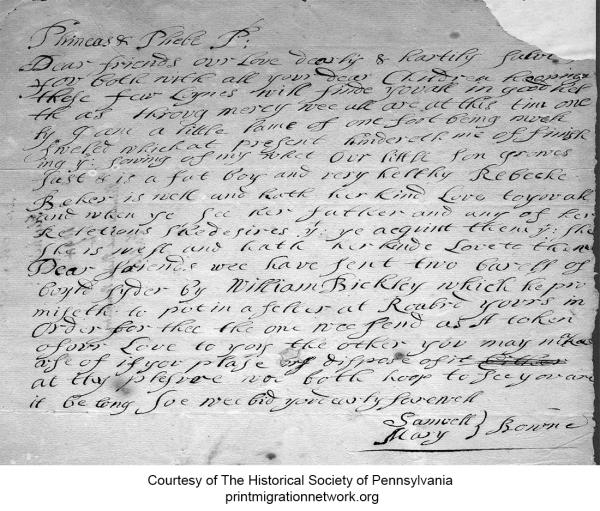 Phineas & Phebe P:
Dear friends our Love dearly & hartily salut
you both with all your dear Children hooping
these few Lynes will finde you all in good hel
th as throug mercy wee all are at this time one
ly I am a little lame of one foot being much
swelled which at present hindereth me of finish
ing y: sowing of my whet Our little son grows
fast & is a fat boy and very helthy Rebecke
Baker is well and hath her kind Love to you all
and when ye see her father and any of her
Relations she desires y: ye acquint them y: she
she is well and hath her kinde Love to them
Dear friends wee have sent two barell of
boyld syder by William Bickley which he pro
miseth to put in a seller at Roabrd yours in
Order for thee the one wee send as A token
of our Love to you the other you may make
use of if you plase or dispose of it
at thy plesure wee both hoop to see you are
it be long soe wee bid you dearly farewell
Samuell
Mary } Bowne
Courtesy of The Historical Society of Pennsylvania
printmigrationnetwork.org